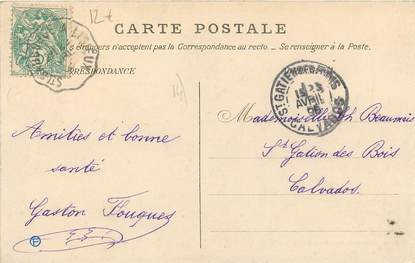 12e
CARTE POSTALE
étrangers n'acceptent pas la Correspondance au recto. — Se renseigner à la Poste.
RRESPONDANCE
ST GATIEN DES BOIS
AVRIL
CALVADOS
Amitiés et bonne
santé
Gaston Fouques
Mademoiselle Beaumais
St Gatien des Bois
Calvados.